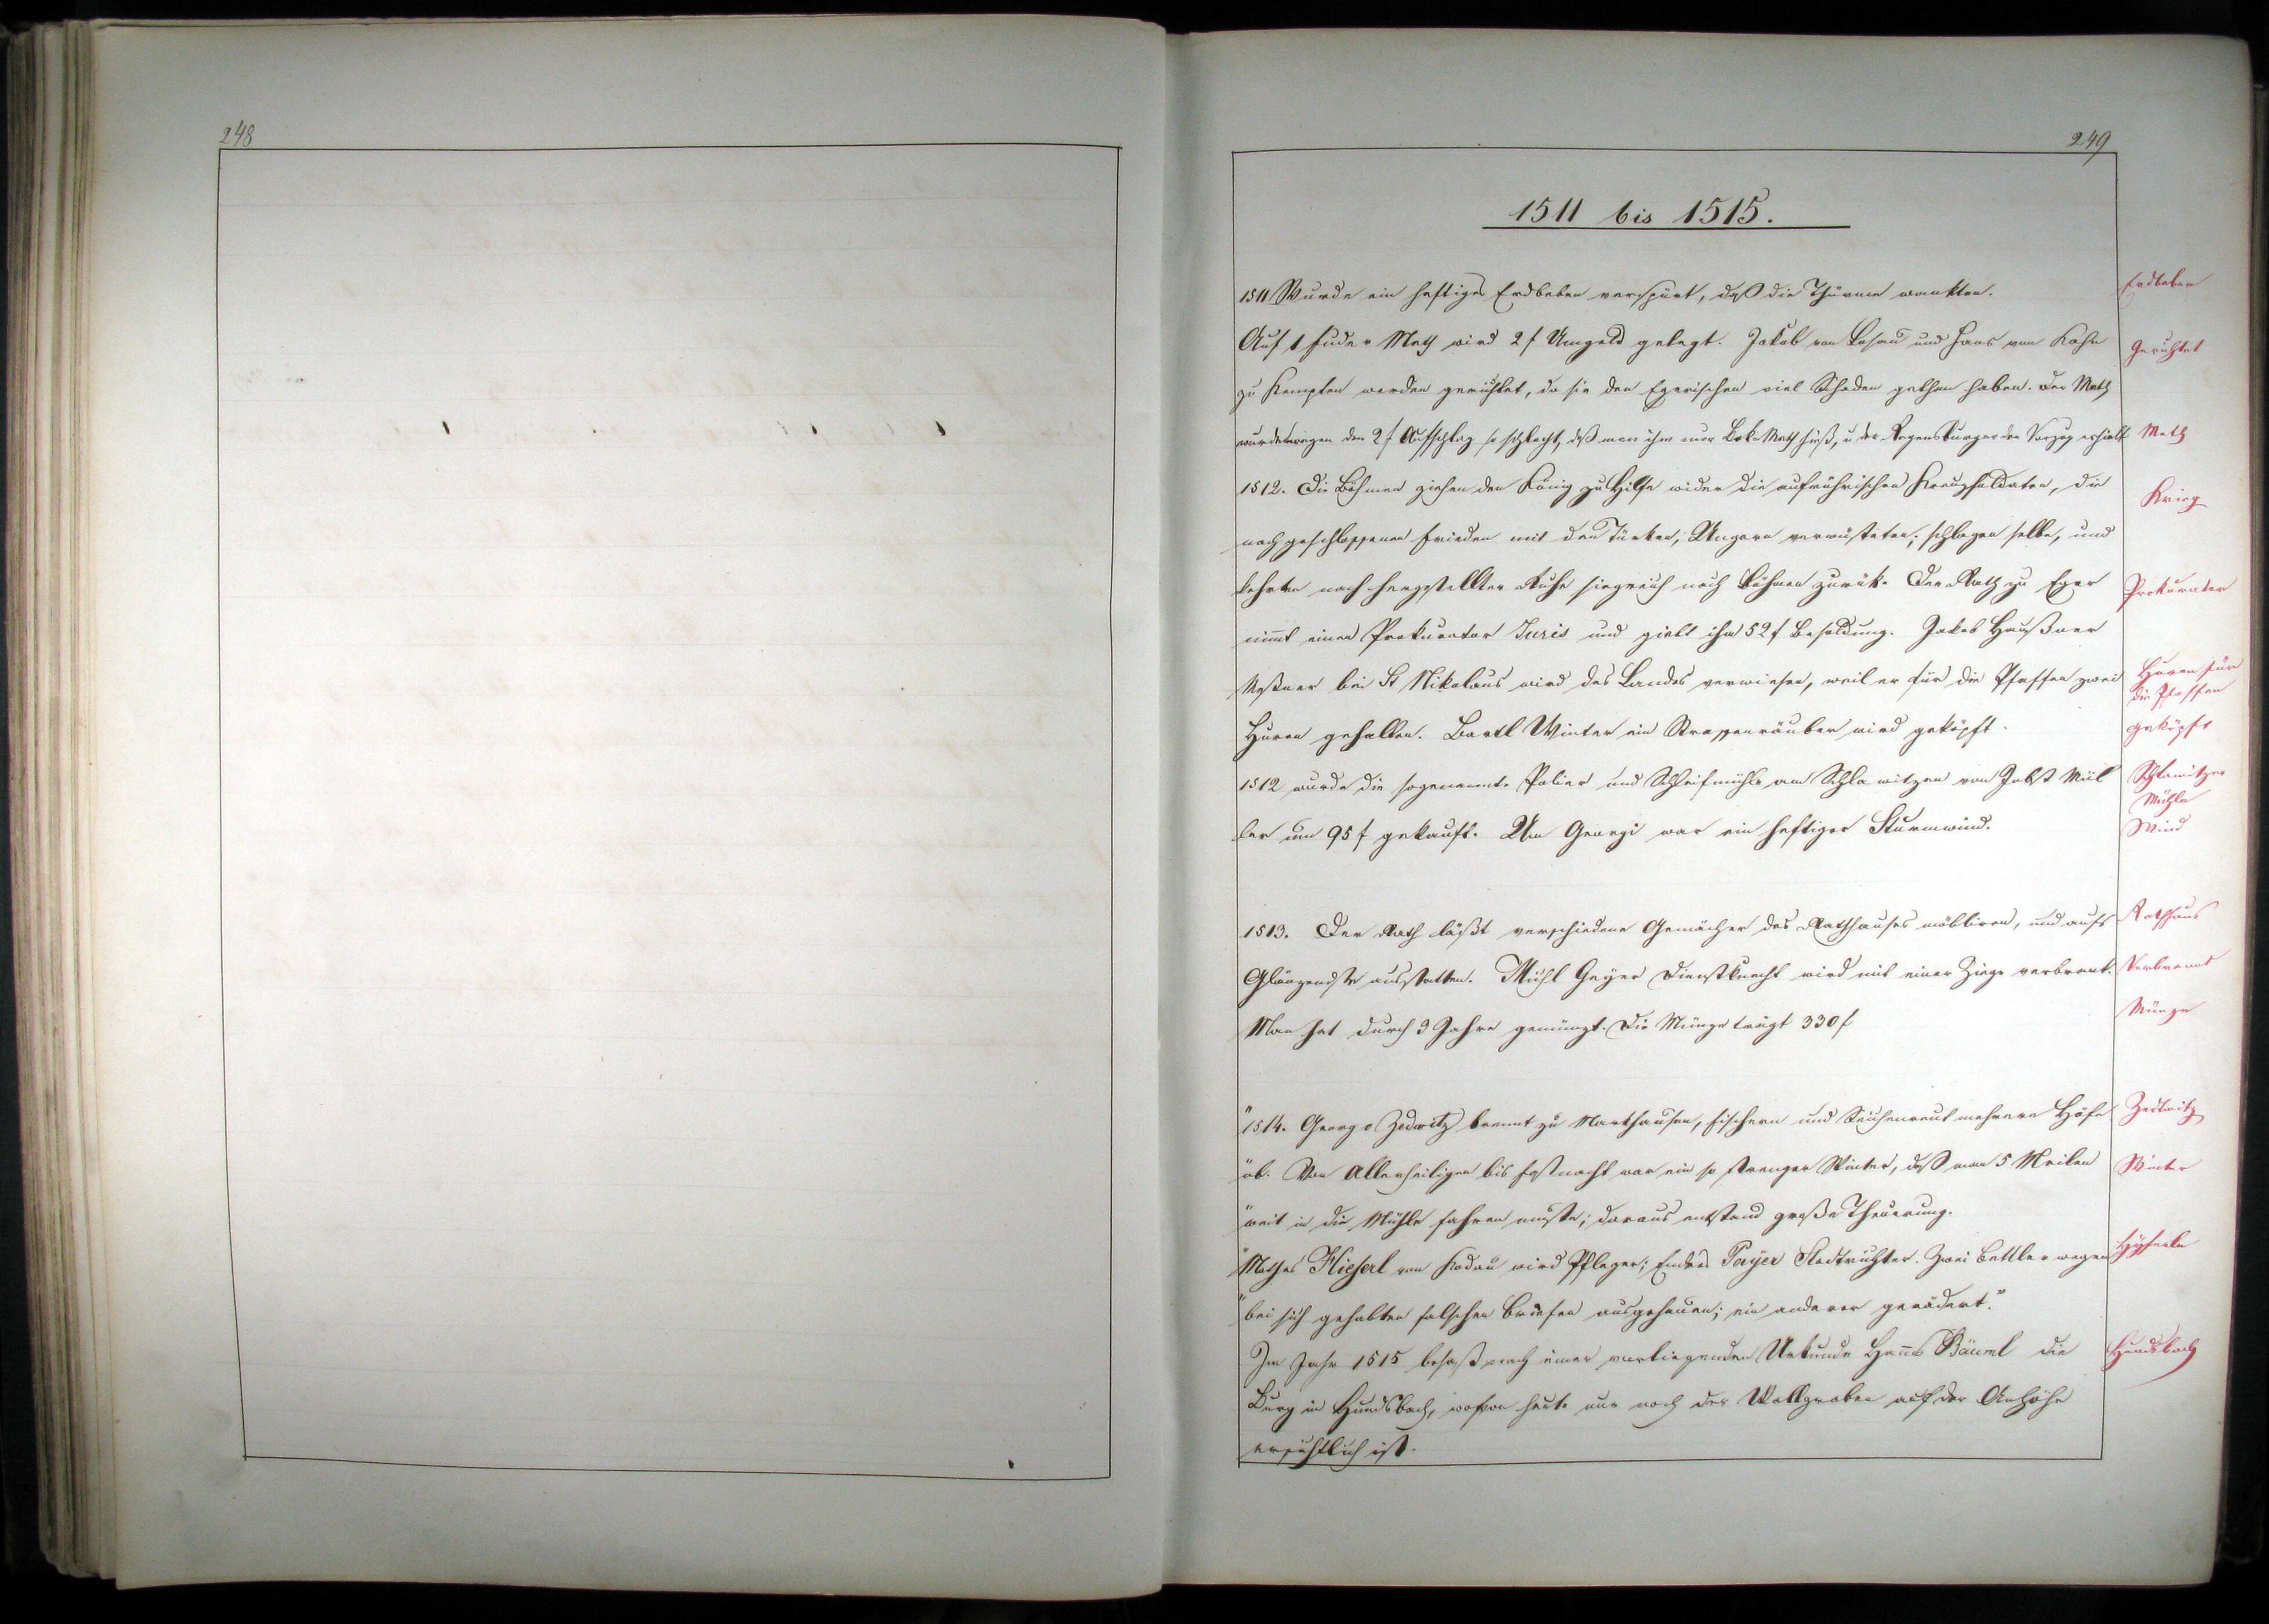 248
249
1511 bis 1515.
1511 Wurde ein heftiges Erdbeben verspürt, daß die Thürme wankten.
Erdbeben
Auf 1 Fuder Meth wird 2 f Umgeld gelegt. Jakob von Losau und Hans von
Gerichtet
zu Kempten werden gerichtet, da sie den Egerischen viel Schaden gethan haben. Der Meth
wurde wegen den 2 f Aufschlag so schlecht, daß man ihn nur Meth hieß, u der Regensburger den Vorzug erhielt
Meth
1512. Die Böhmen ziehen den König zu Hilfe wider die aufrührischen Kreuzsoldaten, die
Krieg
nach geschlossenen Frieden mit den Türken, Ungarn verwüsteten; schlagen selbe, und
kehrten nach hergestellter Ruhe siegreich nach Böhmen zurück. Der Rath zu Eger
Prokurator
nimt einen Prokurator Juris und giebt ihm 52 f Besoldung. Jakob Haußner
Meßner bei St Nikolaus wird des Landes verwiesen, weil er für die Pfaffen zwei
Huren für
die Pfaffen
Huren gehalten. Bartl Winter ein Strassenräuber wird geköpft.
geköpft
1512 wurde die sogenannte Polier und Schleifmühle am Schlawitzen von Jobst Mül
Schlawitzer
Mühle
ler um 95 f gekauft. Um Georgi war ein heftiger Sturmwind.
Wind
1513. Der Rath läßt verschiedene Gemächer des Rathhauses möbliren, und aufs
Rathhaus
Glänzendste ausstatten. Michl Geyer Dienstknecht wird mit einer Ziege verbrant.
Verbrannt
Man hat durch 3 Jahre gemünzt. Die Münze trägt 330 f
Münze
"1514. Georg v Zedwitz brennt zu Markhausen, Fischern und mehrere Höfe
Zedtwitz
"ab. Von Allerheiligen bis Fastnacht war ein so strenger Winter, daß man 5 Meilen
Winter
"weit in die Mühle fahren mußte; daraus entstand große Theuerung.
"Mathes Hieserl von Kodau wird Pfleger; Endres Payer Stadtrichter. Zwei Bettler wegen
"bei sich gehabten falschen Briefen ausgehauen; ein anderer gerädert."
Im Jahr 1515 besaß nach einer vorliegenden Urkunde Hanns Bäuml die
Hundsbach
Burg in Hundsbach, wovon heute nur noch der Wallgraben auf der Anhöhe
ersichtlich ist.